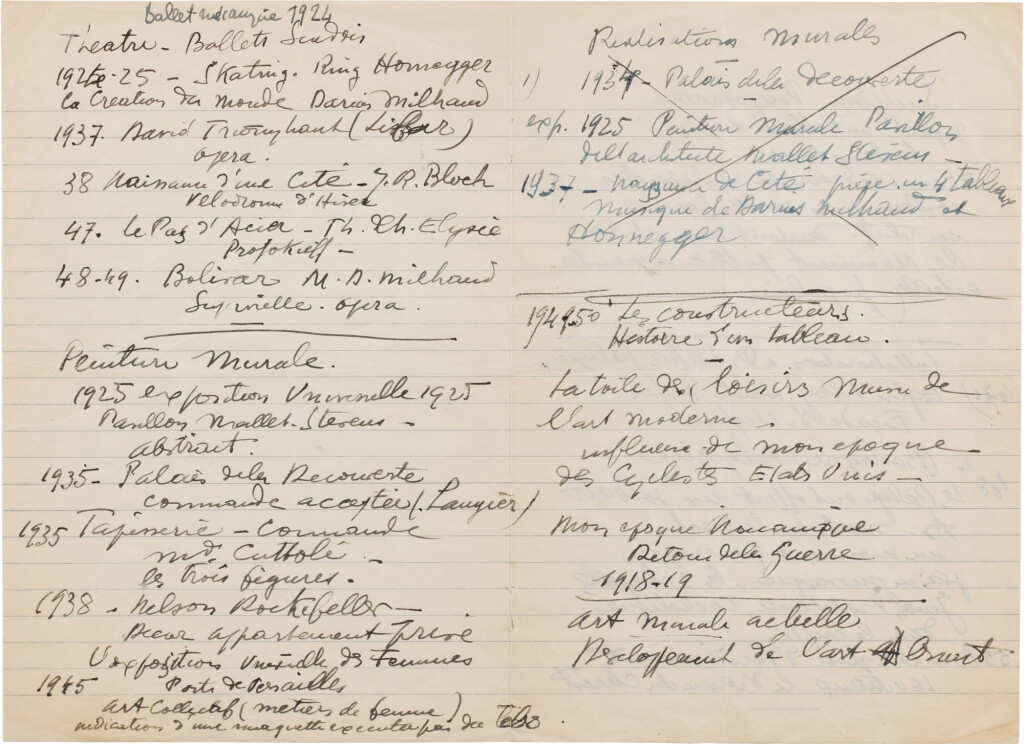 Ballet mécanique 1924
Theatre - Ballets Suedois
1924-25 - Skating. Ring Honnegger
la Creation du monde Darius Milhaud
1937. David Triomphant (Lifar)
opera.
38 Naissance d'une Cité - J. R. Bloch
Velodrome d'Hiver
47. le Pas d'Acier - Th. Ch. Elysée
Prokofieff -
48-49. Bolivar M. D. Milhaud
Supervielle. opera.
Peinture Murale.
1925 exposition Universelle 1925
Pavillon Mallet-Stevens -
abstrait.
1935 - Palais de la Decouverte
commande acceptée (Laugier)
1935 Tapisserie - Commande
Md. Cuttoli -
les trois figures.
1938 - Nelson Rockefeller -
Decor appartement privé
exposition des Femmes
1945 Porte de Versailles
art Collectif (metiers de femme)
indication d'une maquette executée par des
Réalisations Murales
1) 1937 - Palais de la decouverte
exp. 1925 Peinture Murale Pavillon
de l'architecte Mallet Stevens -
1937 - naissance de Cité pièce en 4 tableaux
musique de Darius Milhaud et
Honnegger
1949.50 Les constructeurs.
Histoire d'un tableau.
La toile des loisirs Musée de
l'art moderne.
influence de mon epoque
des Cyclistes Etats Unis -
Mon epoque Mecanique
Retour de la Guerre
1918-19
art murale actuelle
Developement de l'art